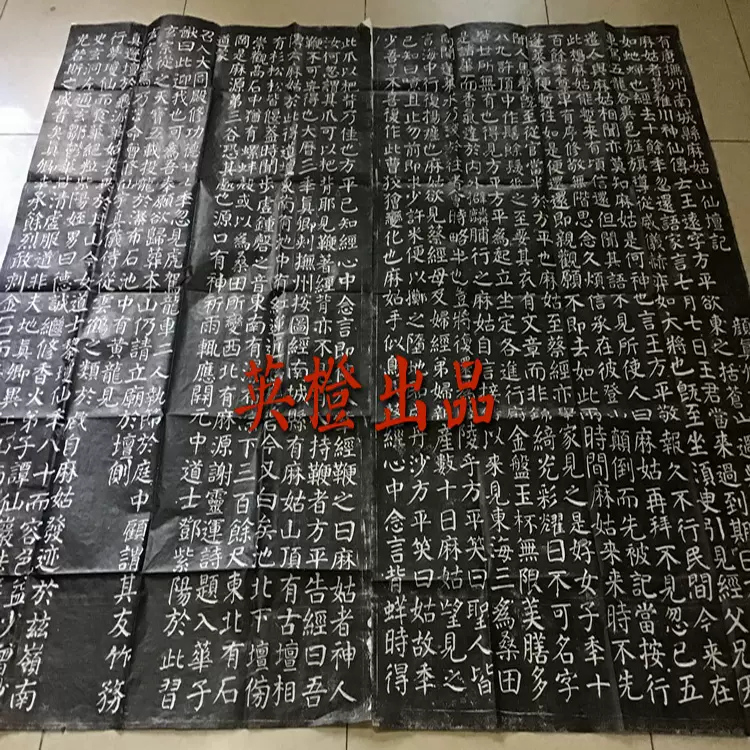 有唐撫州南城縣麻姑山仙壇記
麻姑者葛稚川神仙傳云王遠字方平欲東之括蒼山過
如蛇蟬也經去十餘年忽還語家言七月七日王君當來過到期日
五龍各異色旌旗導從威儀赫弈如大將也既至坐須臾引見經父兄因
遣人與麻姑相聞亦莫知麻姑是何神也言王方平敬報久不行民間今來在
此想麻姑能暫來有頃信還但聞其語不見所使人曰麻姑再拜不見忽已五
百餘年尊卑有序修敬無階思念久煩信承在彼登山顛倒而先被記當按行
蓬萊今便暫往如是便還還即親觀願不即去如此兩時間麻姑來來時不先
聞人馬聲既至從官當半於方平也麻姑至蔡經亦舉家見之是好女子年十
八九許頂中作髻餘髮垂之至要其衣有文章而非錦綺光彩耀日不可名字
皆世所無有也得見方平方平為起立坐定各進行廚金盤玉杯無限美膳多
是諸華而香氣達於內外擗麟脯行之麻姑自言接待以來見東海三為桑田
向間蓬萊水乃淺於往者會時略半也豈將復還為陵陸乎方平笑曰聖人皆
言海中行復揚塵也麻姑欲見蔡經母及婦經弟婦新產數十日麻姑望見之
已知曰噫且止勿前即求少許米便以擲之墮地即成丹沙方平笑曰姑故年
少吾了不喜復作此曹狡獪變化也麻姑手似鳥爪蔡經心中念言背蟬時得
此爪以杷背乃佳也方平已知經心中念言即使人牽經鞭之曰麻姑者神人
汝何忽謂其爪可以杷背耶見鞭著經背亦不見有人持鞭者方平告經曰吾
鞭不可妄得也大曆三年真卿刺撫州按圖經南城縣有麻姑山頂有古壇相
傳云麻姑於此得道壇東南有池中有紅蓮近忽變碧今又白矣池北下壇傍
有杉松松皆偃蓋時聞步虛鐘磬之音東南有瀑布淙下三百餘尺東北有石
崇觀高石中猶有螺蚌殼或以為桑田所變西北有麻源謝靈運詩題入華子
岡是麻源第三谷恐其處也源口有神祈雨輒應開元中道士鄧紫陽於此習
召入大同殿修功德廿七年忽見虎駕龍車二人執節於庭中顧謂其友竹務
猷曰此迎我也可為吾奏願欲歸葬本山仍請立廟於壇側
玄宗從之天寶五載投龍於瀑布石池中有黃龍見
乃命增修仙宇真儀侍從雲鶴之類於戲自麻姑發迹於茲嶺南
真遺壇於龜源華姑表異於井山今女道士黎瓊仙年八十而容色益少曾妙
行夢瓊仙而飡花絕粒紫陽姪男曰德誠繼修香火弟子譚仙巖法
史玄洞左通玄鄒郁華皆清虛服道非夫地氣
光若斯之盛者矣真卿幸承餘烈敢刻金石而
英橙出品